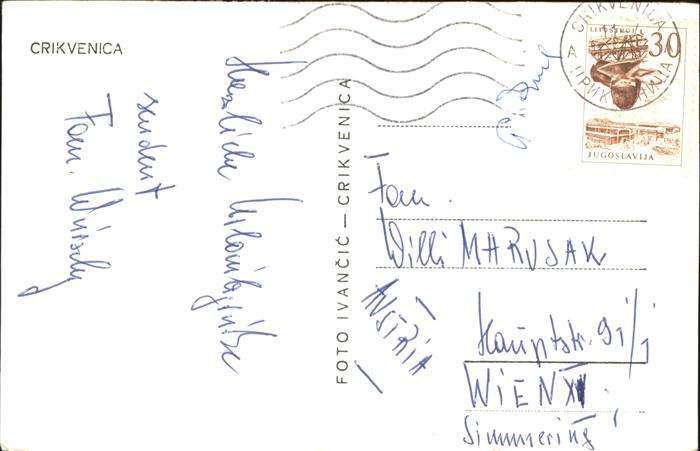 CRIKVENICA
Herzliche Urlaubsgrüße
sendet
Fam.
FOTO IVANČIĆ — CRIKVENICA
CRIKVENICA
30
JUGOSLAVIJA
Fam.
Willi MARUSAK
Hauptstr. 91/1
WIEN XI.
Simmering
AUSTRIA